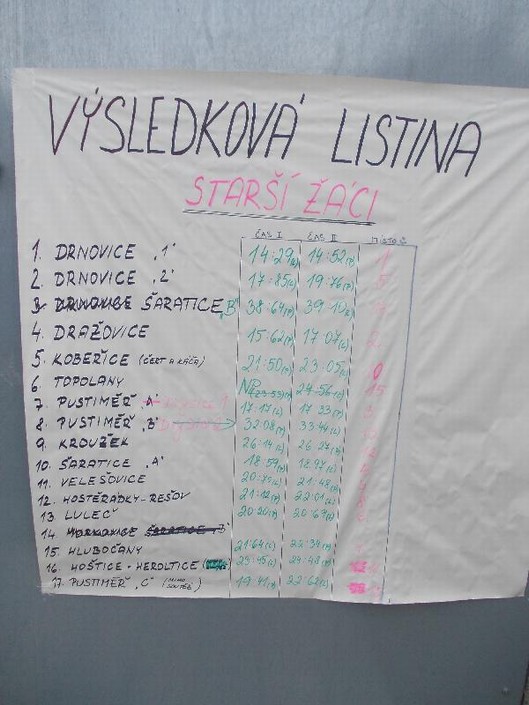 VÝSLEDKOVÁ LISTINA
STARŠÍ ŽÁCI
ČAS I ČAS II MÍSTO
1. DRNOVICE „1" 14:29 14:52 1
2. DRNOVICE „2" 17:85 19:76
3. DRNOVICE ŠARATICE „B" 38:64 39:10
4. DRAŽOVICE 15:62 17:07 2
5. KOBEŘICE (ČERT A KÁČA) 21:50 23:05
6. TOPOLANY NP 29:56 15
7. PUSTIMĚŘ „A" 17:17 17:33
8. PUSTIMĚŘ „B" 32:08 33:44
9. KROUŽEK 26:14 26:27
10. ŠARATICE „A" 18:59 18:97
11. VELEŠOVICE 20:75 21:48
12. HOSTĚRÁDKY-REŠOV 21:12 22:01
13. LULEČ 20:20 20:67
14.
15. HLUBOČANY 21:64 22:34
16. HOŠTICE-HEROLTICE 23:45 24:48
17. PUSTIMĚŘ „C" (MIMO SOUTĚŽ) 19:41 22:62